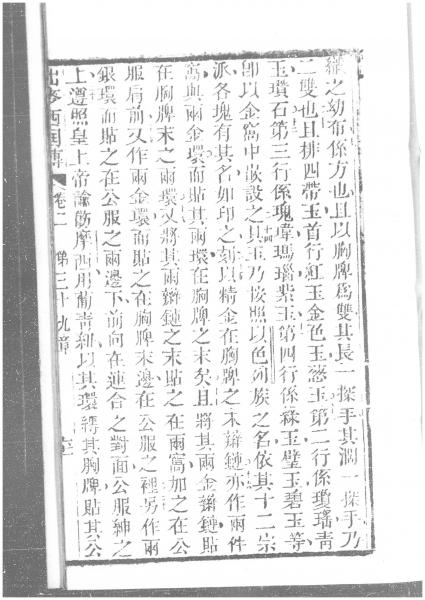 織之幼布係方也且以胸牌爲雙其長一探手其濶一探手乃
二雙也且排四帶玉首行紅玉金色玉葱玉第二行係瓊瑤靑
玉瓚石第三行係瑰韋瑪瑙紫玉第四行係綠玉璧玉碧玉等
卽以金窩中嵌設之其玉乃按照以色列族之名依其十二宗
派各塊有其名如印之刻以精金在胸牌之末辮鏈亦作兩件
窩與兩金環而貼其兩環在胸牌之末矣且將其兩金辮鏈貼
在胸牌末之兩環又將其兩辮鏈之末貼之在兩窩加之在公
服肩前又作兩金環而貼之在胸牌末邊在公服之裡另作兩
銀環而貼之在公服之兩邊下前向在連合之對面公服紳之
上遵照皇上帝諭飭摩西用葡靑紐以其環縛其胸牌貼其公
出麥西國傳 卷二 第三十九章